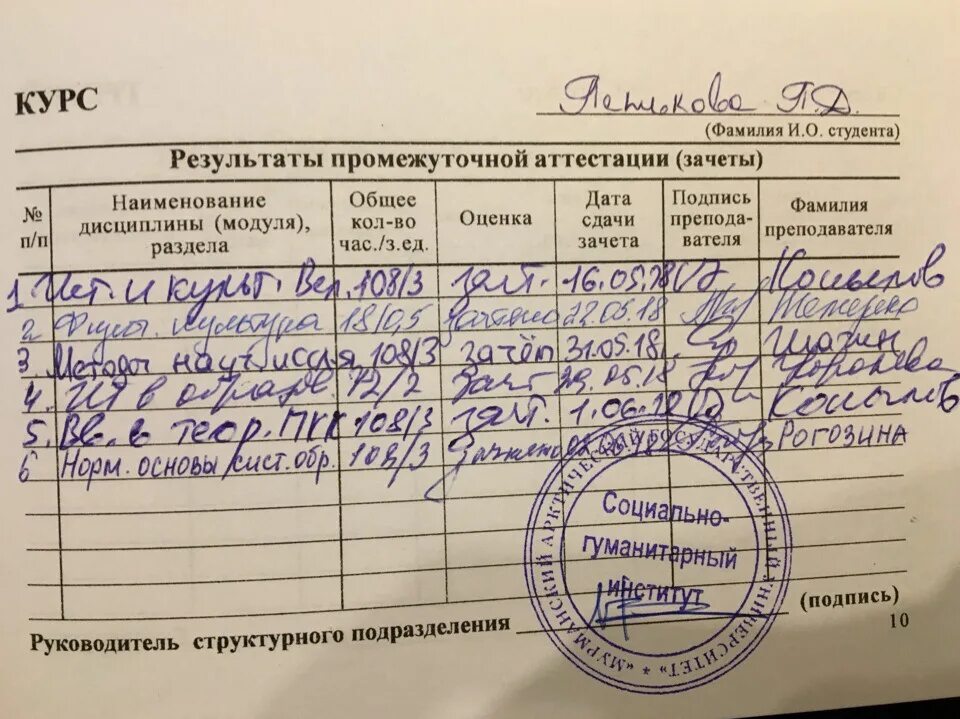 КУРС
П.Д.
(Фамилия И.О. студента)
Результаты промежуточной аттестации (зачеты)
№ п/п Наименование дисциплины (модуля), раздела Общее кол-во час./з.ед. Оценка Дата сдачи зачета Подпись препода-вателя Фамилия преподавателя
1. Ист. и культ. Вел. 108/3 зачт. 16.05.18 Копылов
2 Физич. культура 18/0,5 зачтено 22.05.18
3 Методы науч. исслед. 108/3 зачёт 31.05.18. Шагин
4. ИТ в образов. 72/2 Зачт 29.05.18
5. Вв. в теор. ПКК 108/3 зачт. 1.06.18 Копылов
6 Норм. основы сист. обр. 108/3 Зачтено РОГОЗИНА
Социально-
гуманитарный
институт
«МУРМАНСКИЙ АРКТИЧЕСКИЙ ГОСУДАРСТВЕННЫЙ УНИВЕРСИТЕТ»
(подпись)
Руководитель структурного подразделения
10